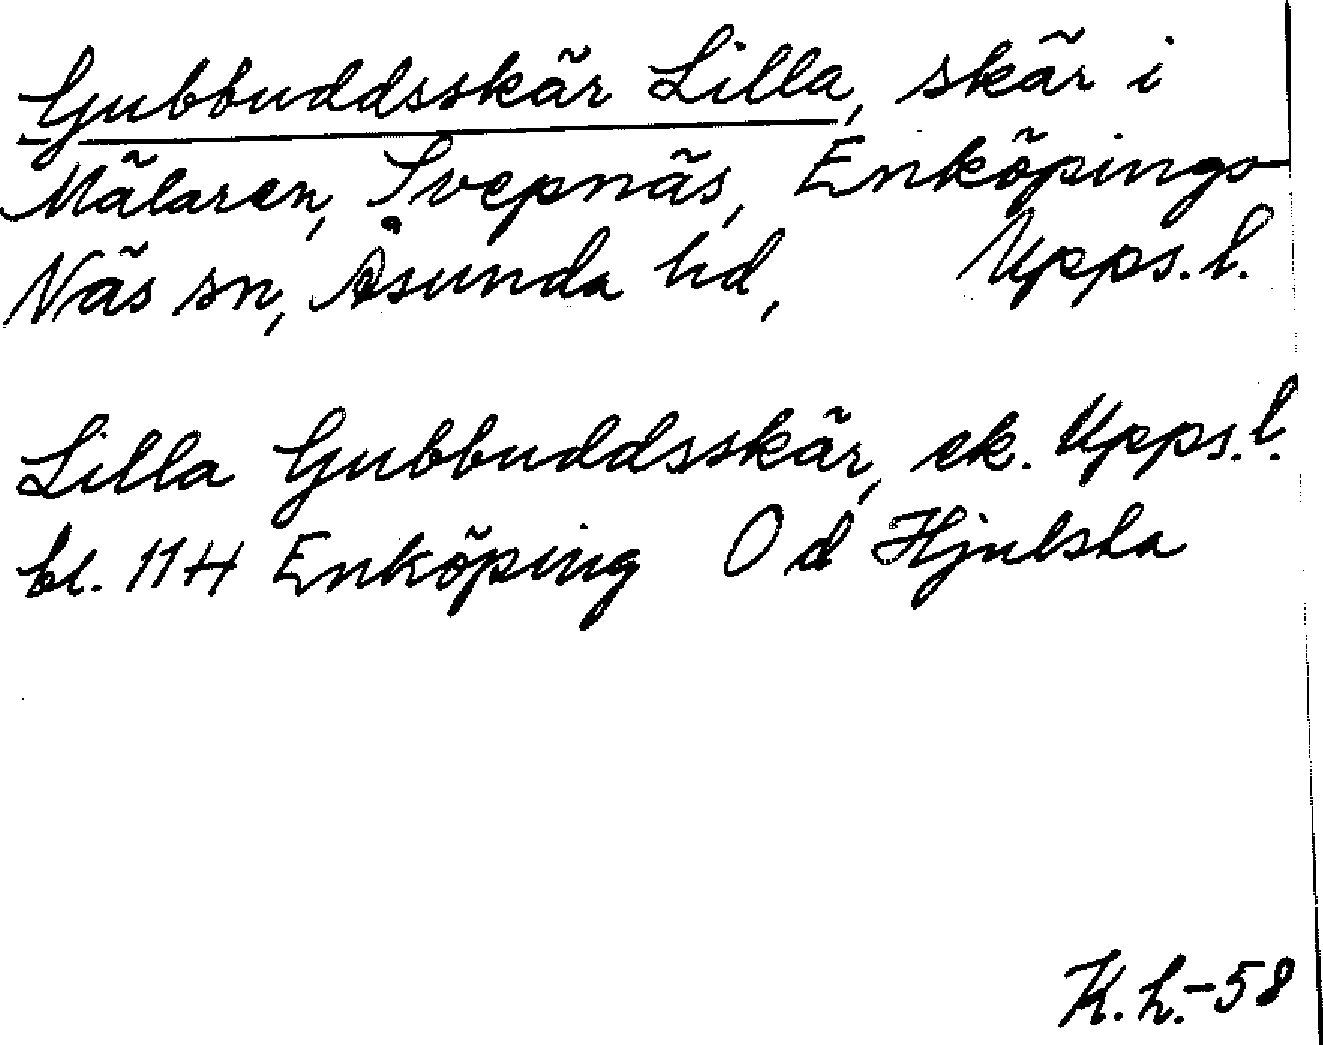 Gubbuddsskär Lilla, skär i
Mälaren, Svepnäs, Enköpings-
Näs sn, Åsunda hd, Upps. l.
Lilla Gubbuddsskär, ek. Upps. l.
bl. 11 H Enköping O d Hjulsta
K. L. -58